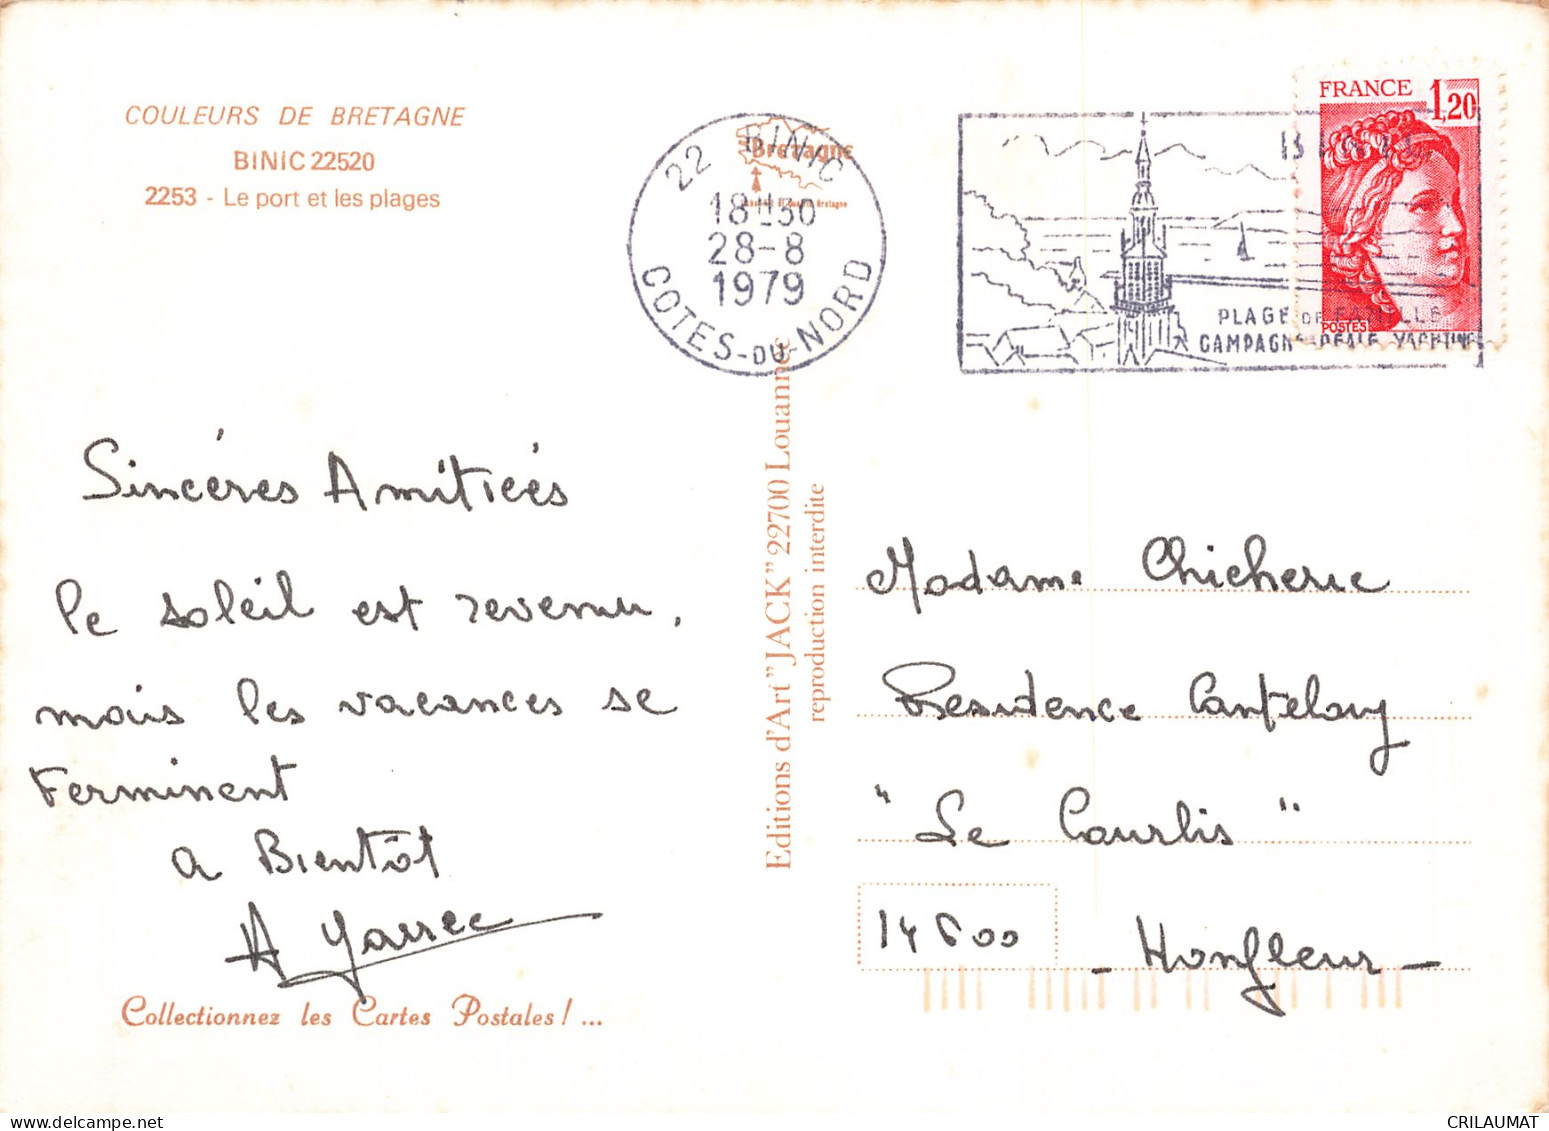 COULEURS DE BRETAGNE
BINIC 22520
2253 - Le port et les plages
22 BINIC
18H30
28-8
1979
COTES-DU-NORD
Bretagne
PLAGE DE FAMILLE
CAMPAGNE IDEALE YACHTING
FRANCE 1,20
POSTES
Sincéres Amitiés
le soleil est revenu,
mais les vacances se
terminent
a Bientôt
Collectionnez les Cartes Postales ! ...
Editions d'Art "JACK" 22700 Louannec
reproduction interdite
Madame Chicherie
Residence Canteloup
"Le Courlis"
14600 - Honfleur -
CRILAUMAT